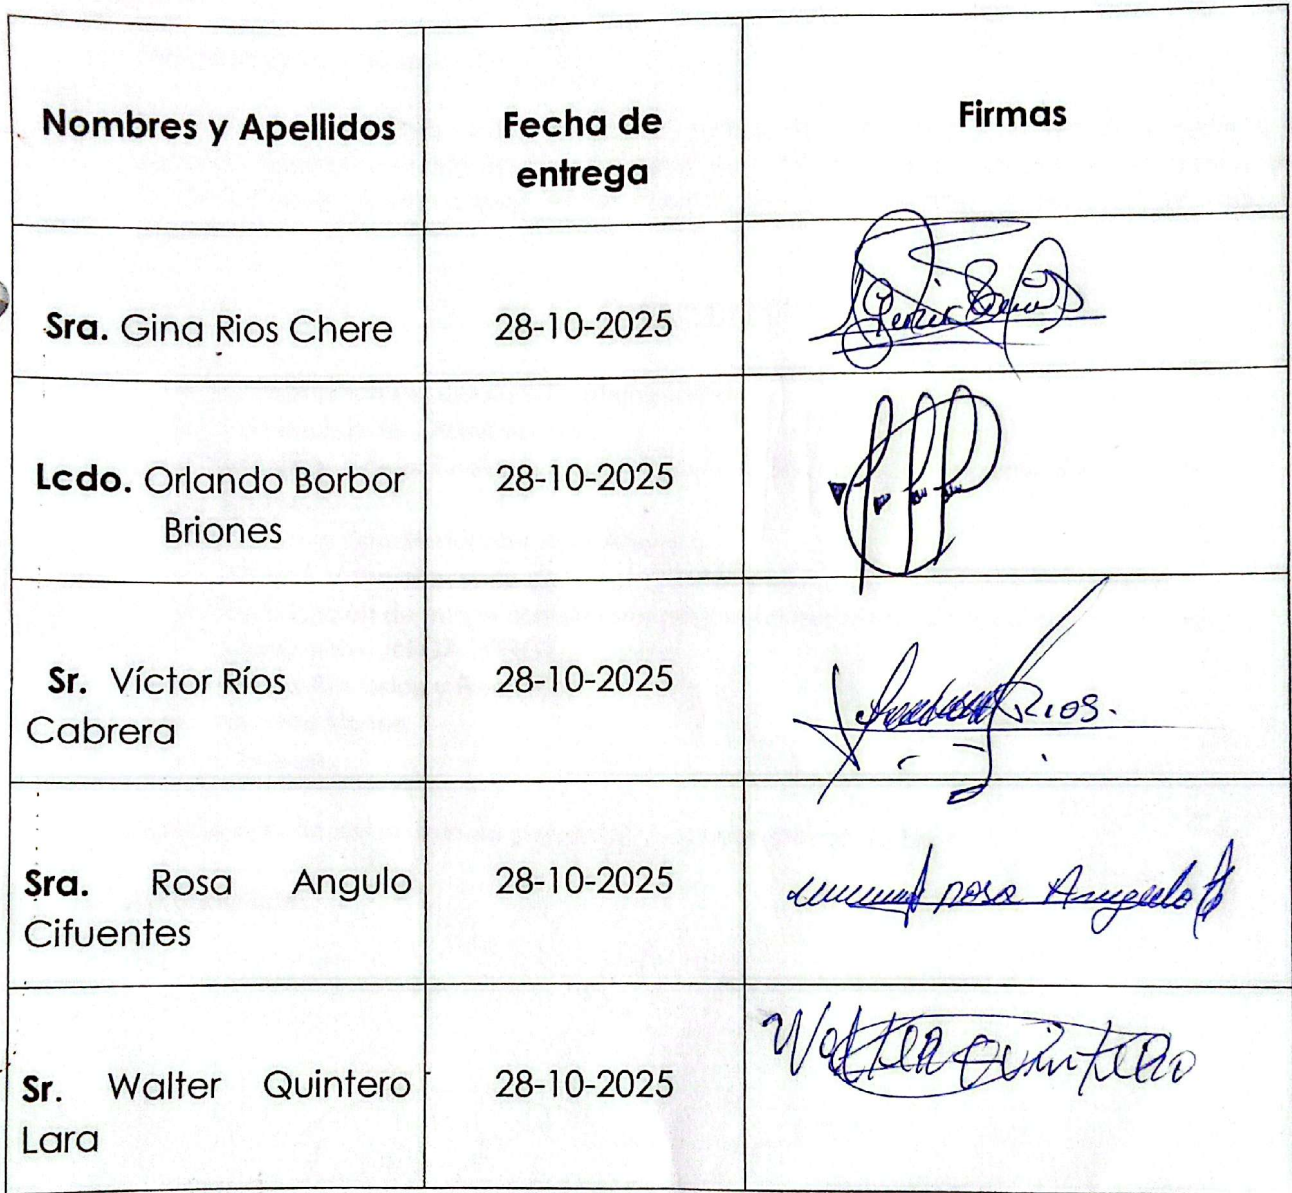 Nombres y Apellidos
Fecha de
entrega
Firmas
Sra. Gina Rios Chere
28-10-2025
Lcdo. Orlando Borbor
Briones
28-10-2025
Sr. Víctor Ríos
Cabrera
28-10-2025
Rios.
Sra. Rosa Angulo
Cifuentes
28-10-2025
rosa Angulo
Sr. Walter Quintero
Lara
28-10-2025
Walter Quintero